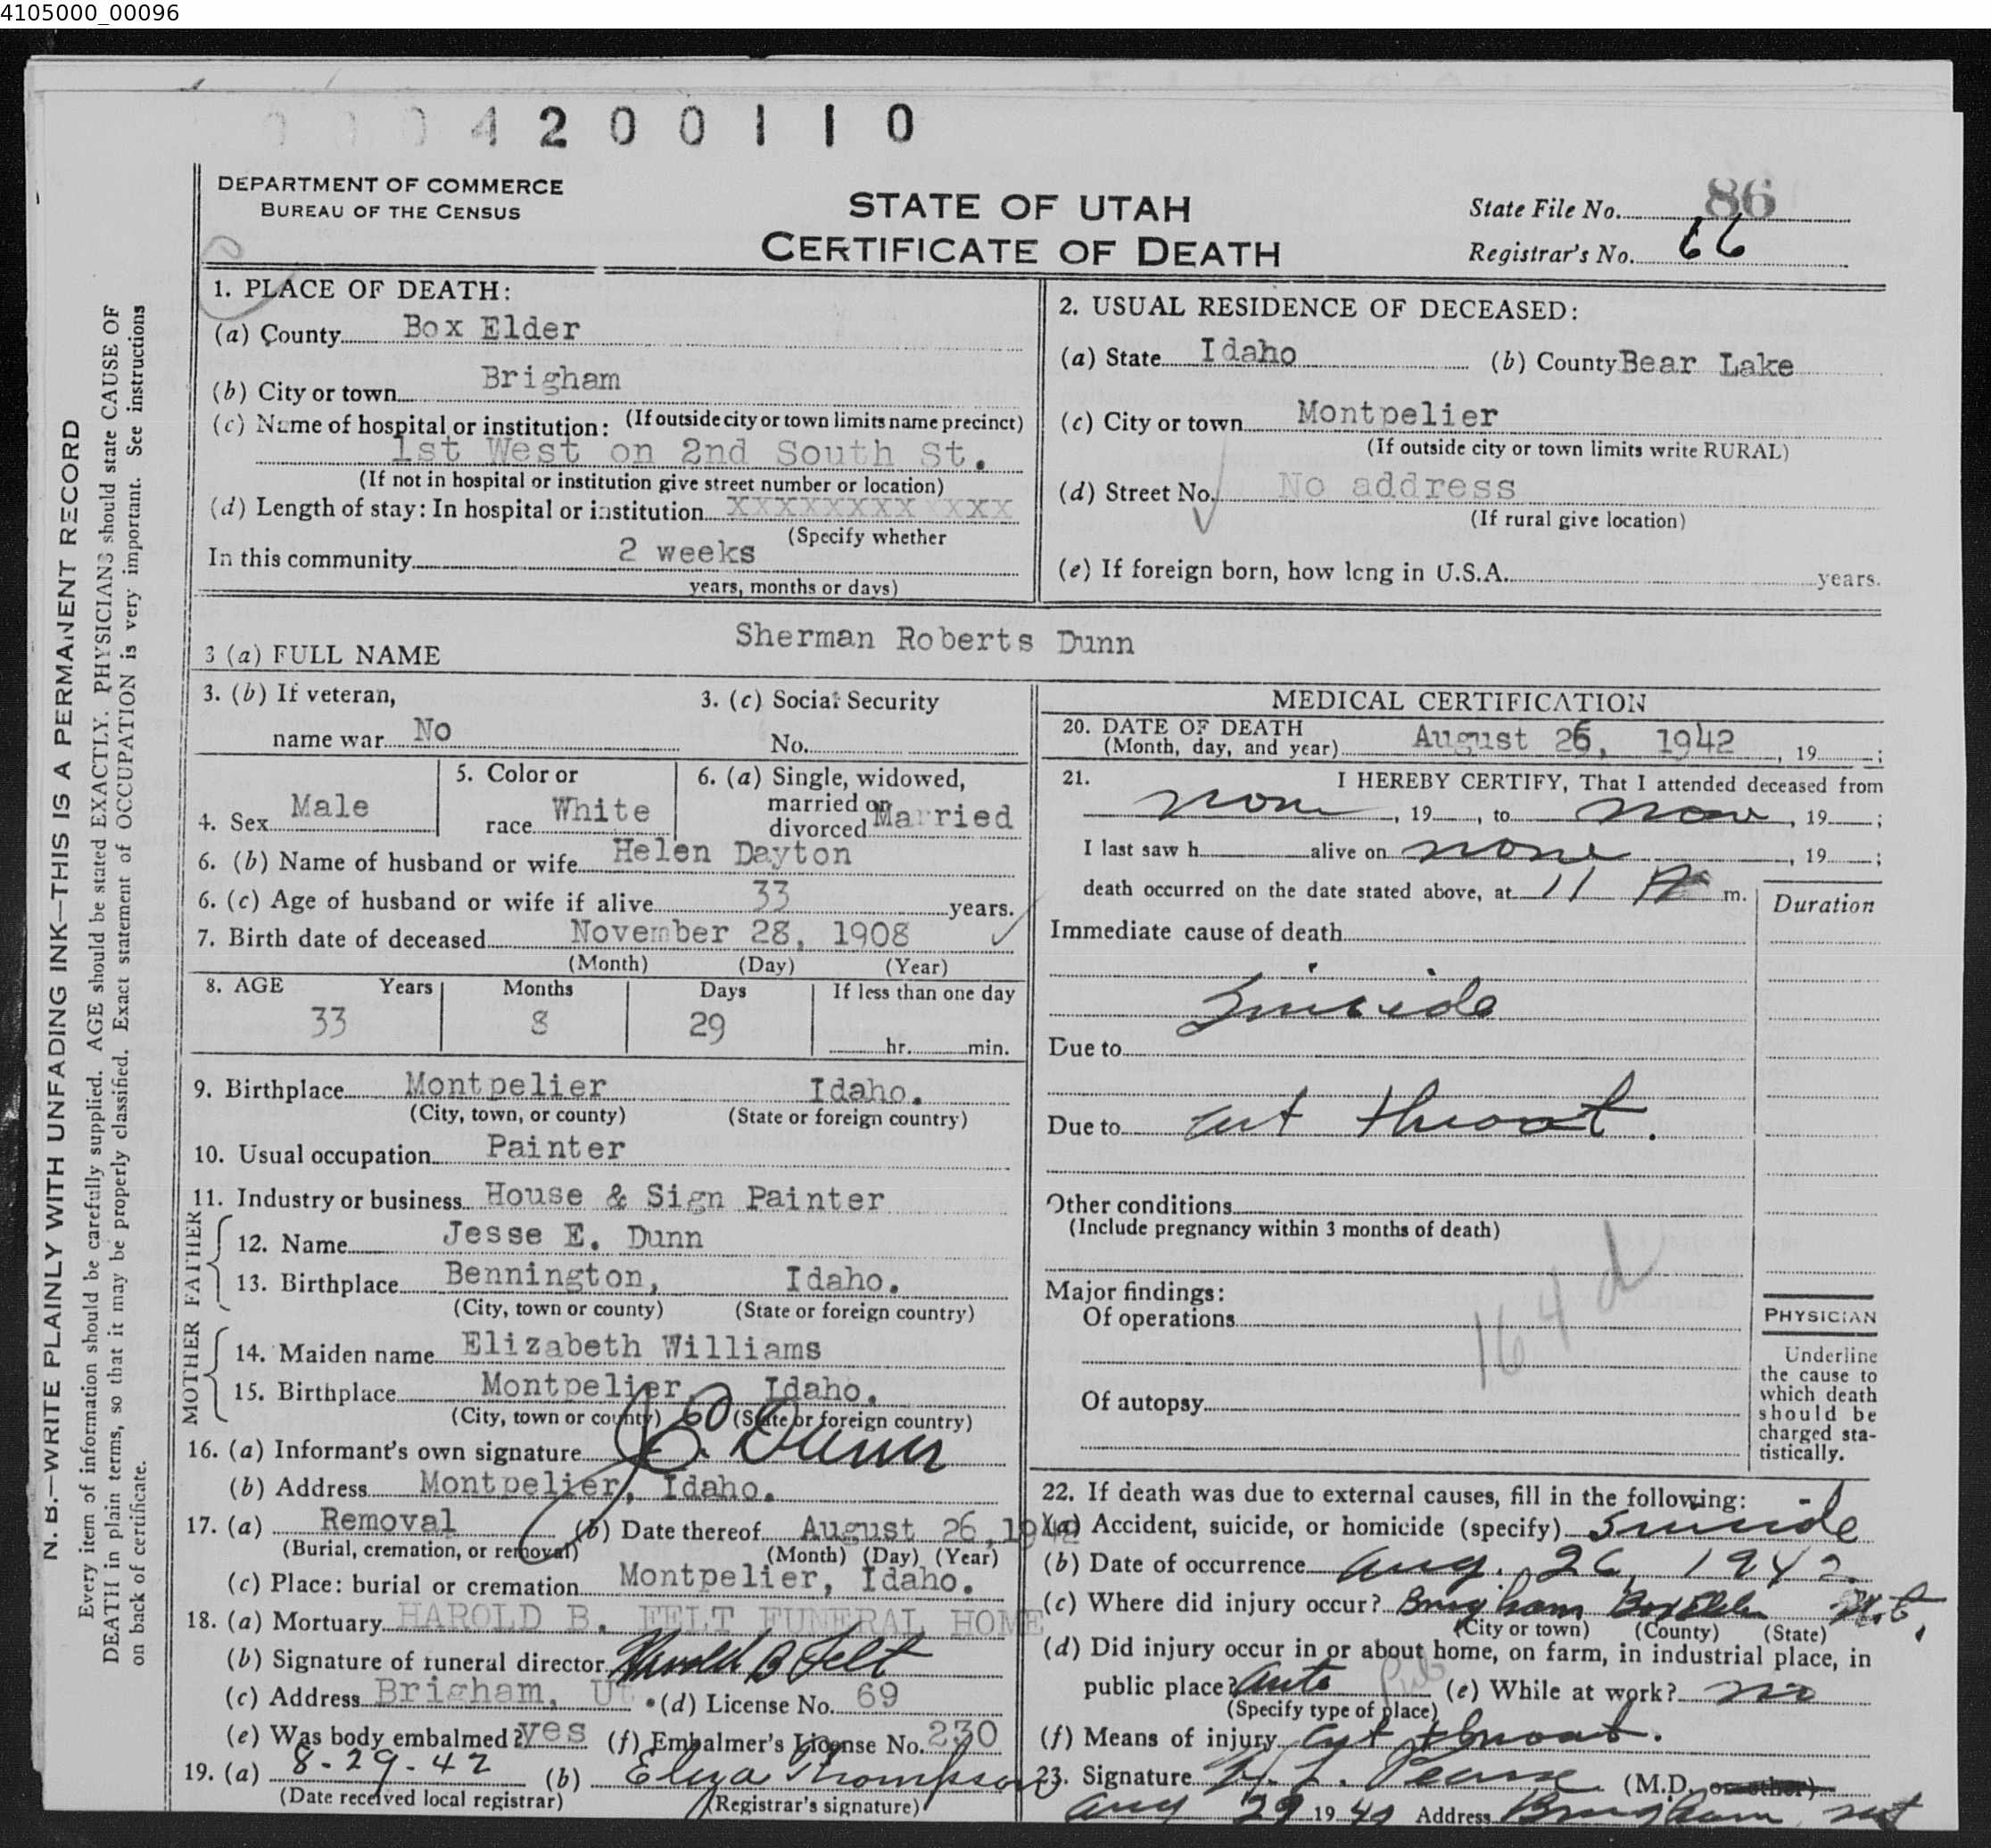 4105000_00096
0004200110
DEPARTMENT OF COMMERCE
BUREAU OF THE CENSUS
STATE OF UTAH
CERTIFICATE OF DEATH
State File No. 86
Registrar's No. 66
N. B.—WRITE PLAINLY WITH UNFADING INK—THIS IS A PERMANENT RECORD
Every item of information should be carefully supplied. AGE should be stated EXACTLY. PHYSICIANS should state CAUSE OF
DEATH in plain terms, so that it may be properly classified. Exact statement of OCCUPATION is very important. See instructions
on back of certificate.
1. PLACE OF DEATH:
(a) County Box Elder
(b) City or town Brigham
(c) Name of hospital or institution: (If outside city or town limits name precinct)
1st West on 2nd South St.
(If not in hospital or institution give street number or location)
(d) Length of stay: In hospital or institution XXXXXXXX XXXX
(Specify whether
In this community 2 weeks
years, months or days)
2. USUAL RESIDENCE OF DECEASED:
(a) State Idaho (b) County Bear Lake
(c) City or town Montpelier
(If outside city or town limits write RURAL)
(d) Street No. No address
(If rural give location)
(e) If foreign born, how long in U.S.A. years.
3 (a) FULL NAME Sherman Roberts Dunn
3. (b) If veteran,
name war No
3. (c) Social Security
No.
4. Sex Male
5. Color or
race White
6. (a) Single, widowed,
married or
divorced Married
6. (b) Name of husband or wife Helen Dayton
6. (c) Age of husband or wife if alive 33 years.
7. Birth date of deceased November 28, 1908
(Month) (Day) (Year)
8. AGE Years Months Days If less than one day
33 8 29 hr. min.
9. Birthplace Montpelier Idaho.
(City, town, or county) (State or foreign country)
10. Usual occupation Painter
11. Industry or business House & Sign Painter
FATHER
12. Name Jesse E. Dunn
13. Birthplace Bennington, Idaho.
(City, town or county) (State or foreign country)
MOTHER
14. Maiden name Elizabeth Williams
15. Birthplace Montpelier, Idaho.
(City, town or county) (State or foreign country)
16. (a) Informant's own signature Dunn
(b) Address Montpelier, Idaho.
17. (a) Removal (b) Date thereof August 26, 1942
(Burial, cremation, or removal) (Month) (Day) (Year)
(c) Place: burial or cremation Montpelier, Idaho.
18. (a) Mortuary HAROLD B. FELT FUNERAL HOME
(b) Signature of funeral director Harold B Felt
(c) Address Brigham, Ut. (d) License No. 69
(e) Was body embalmed? yes (f) Embalmer's License No. 230
19. (a) 8-29-42 (b) Eliza Thompson
(Date received local registrar) (Registrar's signature)
MEDICAL CERTIFICATION
20. DATE OF DEATH
(Month, day, and year) August 26, 1942, 19 ;
21. I HEREBY CERTIFY, That I attended deceased from
none, 19 , to none, 19 ;
I last saw h alive on none, 19 ;
death occurred on the date stated above, at 11 m.
Duration
Immediate cause of death
Suicide
Due to
Due to cut throat.
Other conditions
(Include pregnancy within 3 months of death)
164d
Major findings:
Of operations
Of autopsy
PHYSICIAN
Underline
the cause to
which death
should be
charged sta-
tistically.
22. If death was due to external causes, fill in the following:
(a) Accident, suicide, or homicide (specify) Suicide
(b) Date of occurrence Aug. 26, 1942.
(c) Where did injury occur? Brigham Box Elder Ut.
(City or town) (County) (State)
(d) Did injury occur in or about home, on farm, in industrial place, in
public place? Auto Pub (e) While at work? no
(Specify type of place)
(f) Means of injury Cut throat.
23. Signature Pearse (M.D. or other)
Aug 29 19 Address Brigham Ut